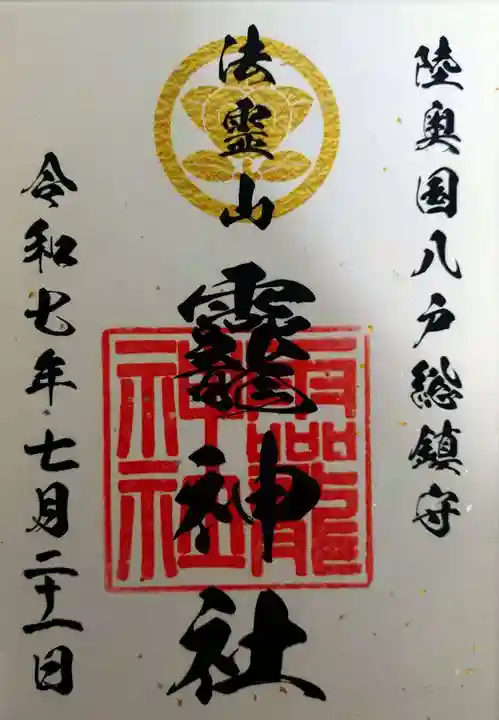 陸奥国八戸総鎮守
法霊山
龗神社
龗神社
令和七年七月二十一日